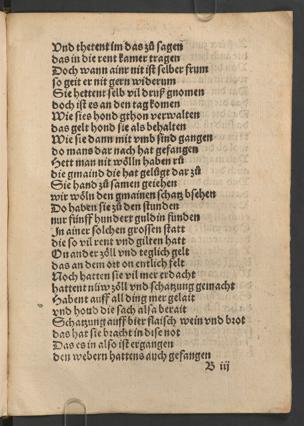 Vnd thetent im das zů sagen
das in die rent kamer tragen
Doch wann ainr nit ist selber frum
so geit er nit gern widerum
Sie hettent selb vil druß gnomen
doch ist es an den tag komen
Wie sies hond gthon verwalten
das gelt hond sie als behalten
Wie sie dann mit vmb sind gangen
do mans dar nach hat gefangen
Hett man nit wölln haben rů
die gmaind die hat gelůgt dar zů
Sie hand zů samen geiehen
wir wöln den gmainen schatz bsehen
Do haben sie zů den stunden
nur fünff hundert guldin funden
In ainer solchen grossen statt
die so vil rent vnd gilten hatt
On ander zöll vnd teglich gelt
das an dem ort on entlich felt
Noch hatten sie vil mer erdacht
hattent nüw zöll vnd schatzung gemacht
Habent auff all ding mer gelait
vnd hond die sach alsa berait
Schatzung auff bier flaisch wein vnd brot
das hat sie bracht in dise not
Das es in also ist ergangen
den webern hattens auch gefangen
B iij